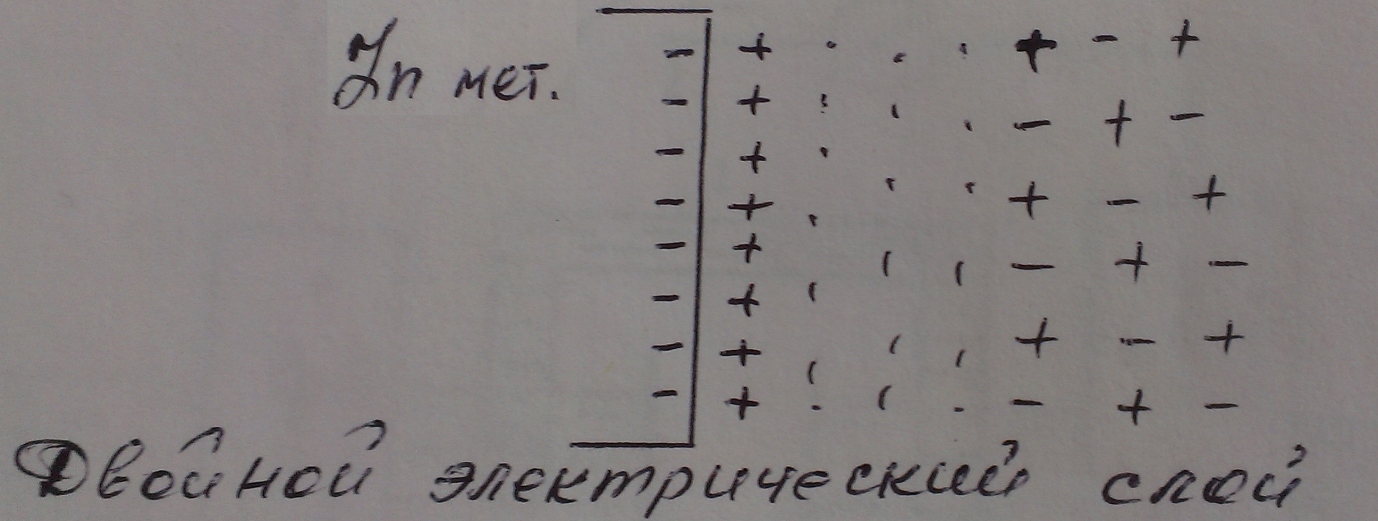 Zn мет.
Двойной электрический слой